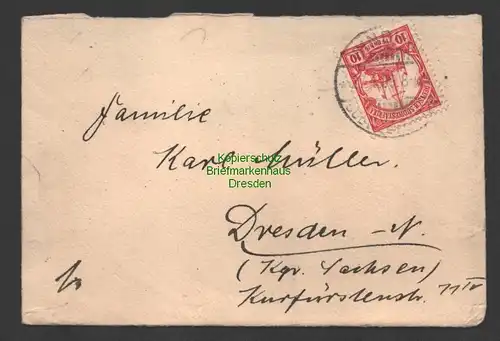 10 10
DEUTSCH-SÜDWESTAFRIKA
Familie
Karl Müller.
Kopierschutz
Briefmarkenhaus
Dresden
Dresden-N.
(Kgr. Sachsen)
Kurfürstenstr. 11 IV